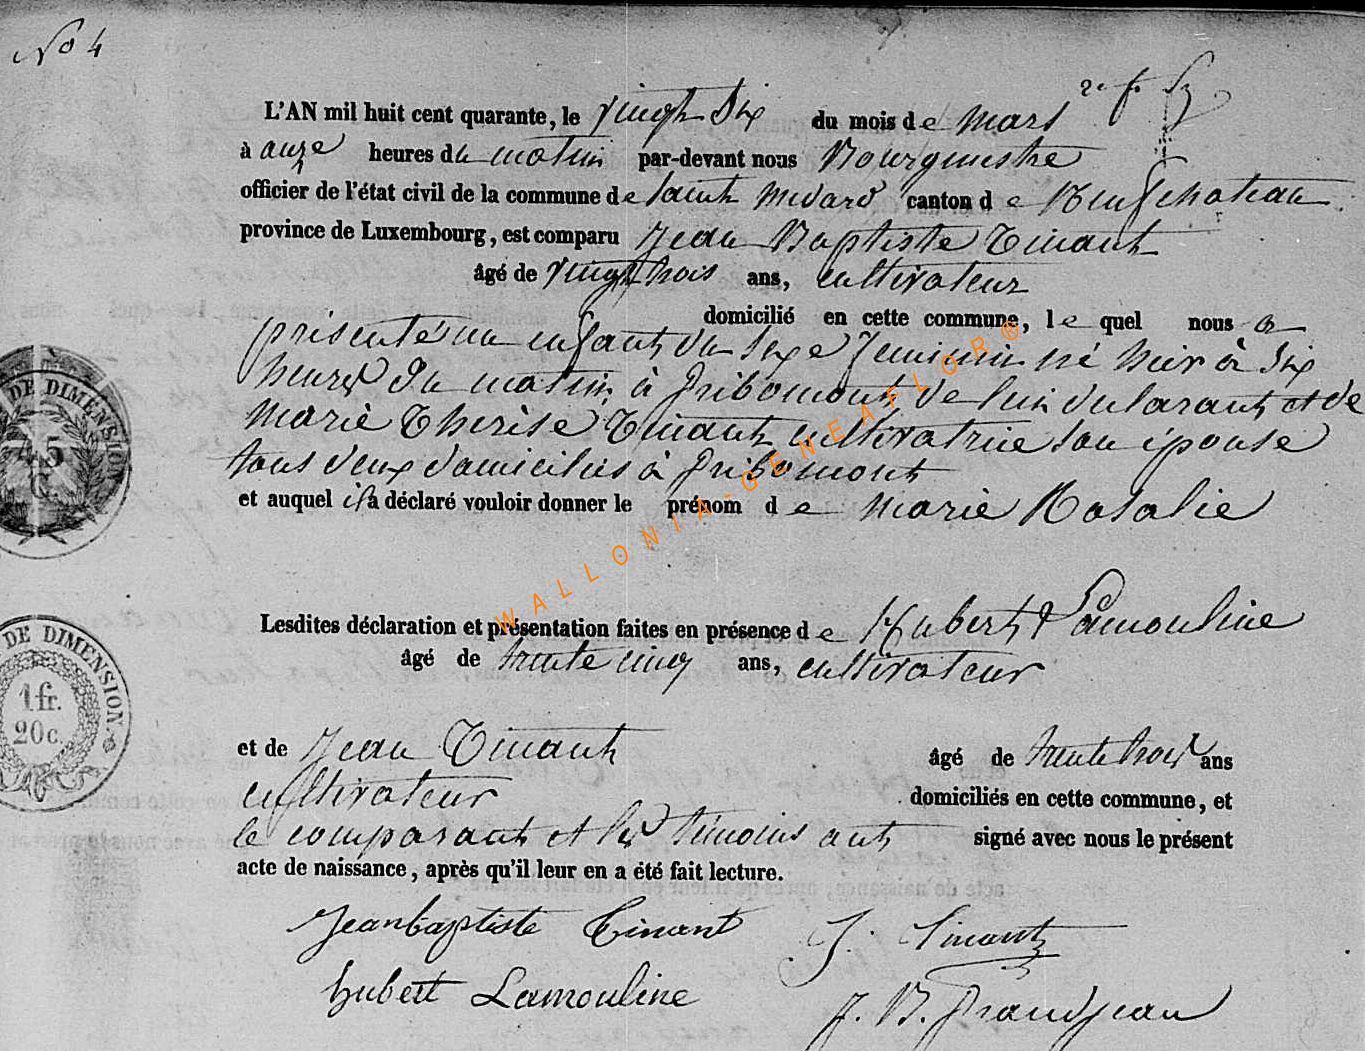 No 4
2e f.
L'AN mil huit cent quarante, le vingt Six du mois de mars
à onze heures du matin par-devant nous Bourgmestre
officier de l'état civil de la commune de Saint Médard canton de Neufchateau
province de Luxembourg, est comparu Jean Baptiste Tinant
âgé de vingt trois ans, cultivateur
domicilié en cette commune, lequel nous a
présenté un enfant du Sexe féminin né hier à Six
heures du matin à Gribomont de lui déclarant et de
Marie Thérèse Tinant cultivatrice son épouse
tous deux domiciliés à Gribomont
et auquel il a déclaré vouloir donner le prénom de Marie Rosalie
WALLONIA-GENEAFLOR®
DE DIMENSION
45
C
Lesdites déclaration et présentation faites en présence de Hubert Lamouline
âgé de trente cinq ans, cultivateur
DE DIMENSION.
1 fr.
20 c.
et de Jean Tinant âgé de trente trois ans
cultivateur domiciliés en cette commune, et
le comparant et les témoins ont signé avec nous le présent
acte de naissance, après qu'il leur en a été fait lecture.
Jean baptiste Tinant J. Tinant
hubert Lamouline
J. B. Grandjean